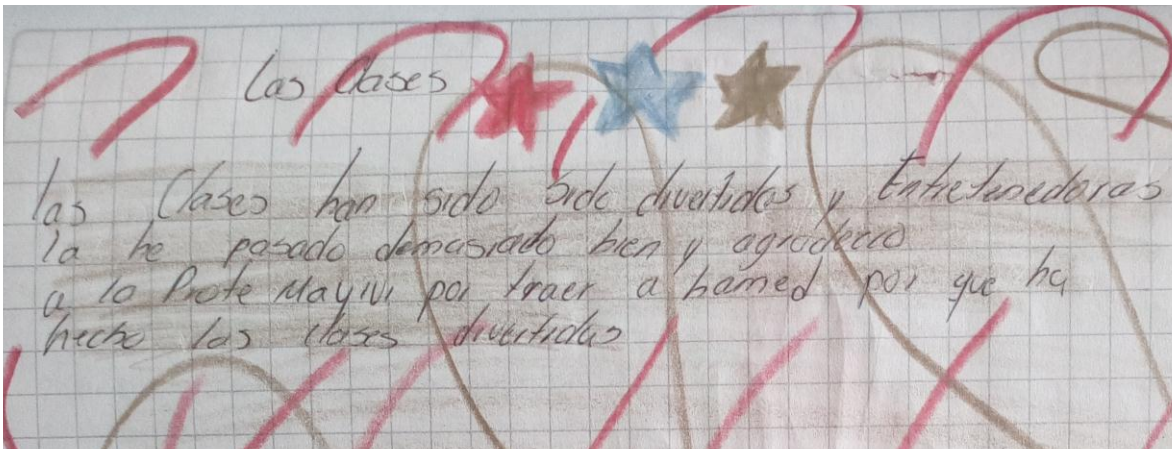 las clases
las Clases han sido side divertidas y Entretenedoras
la he pasado demasiado bien y agradezco
a la Profe Mayivi por traer a hamed por que ha
hecho las clases divertidas